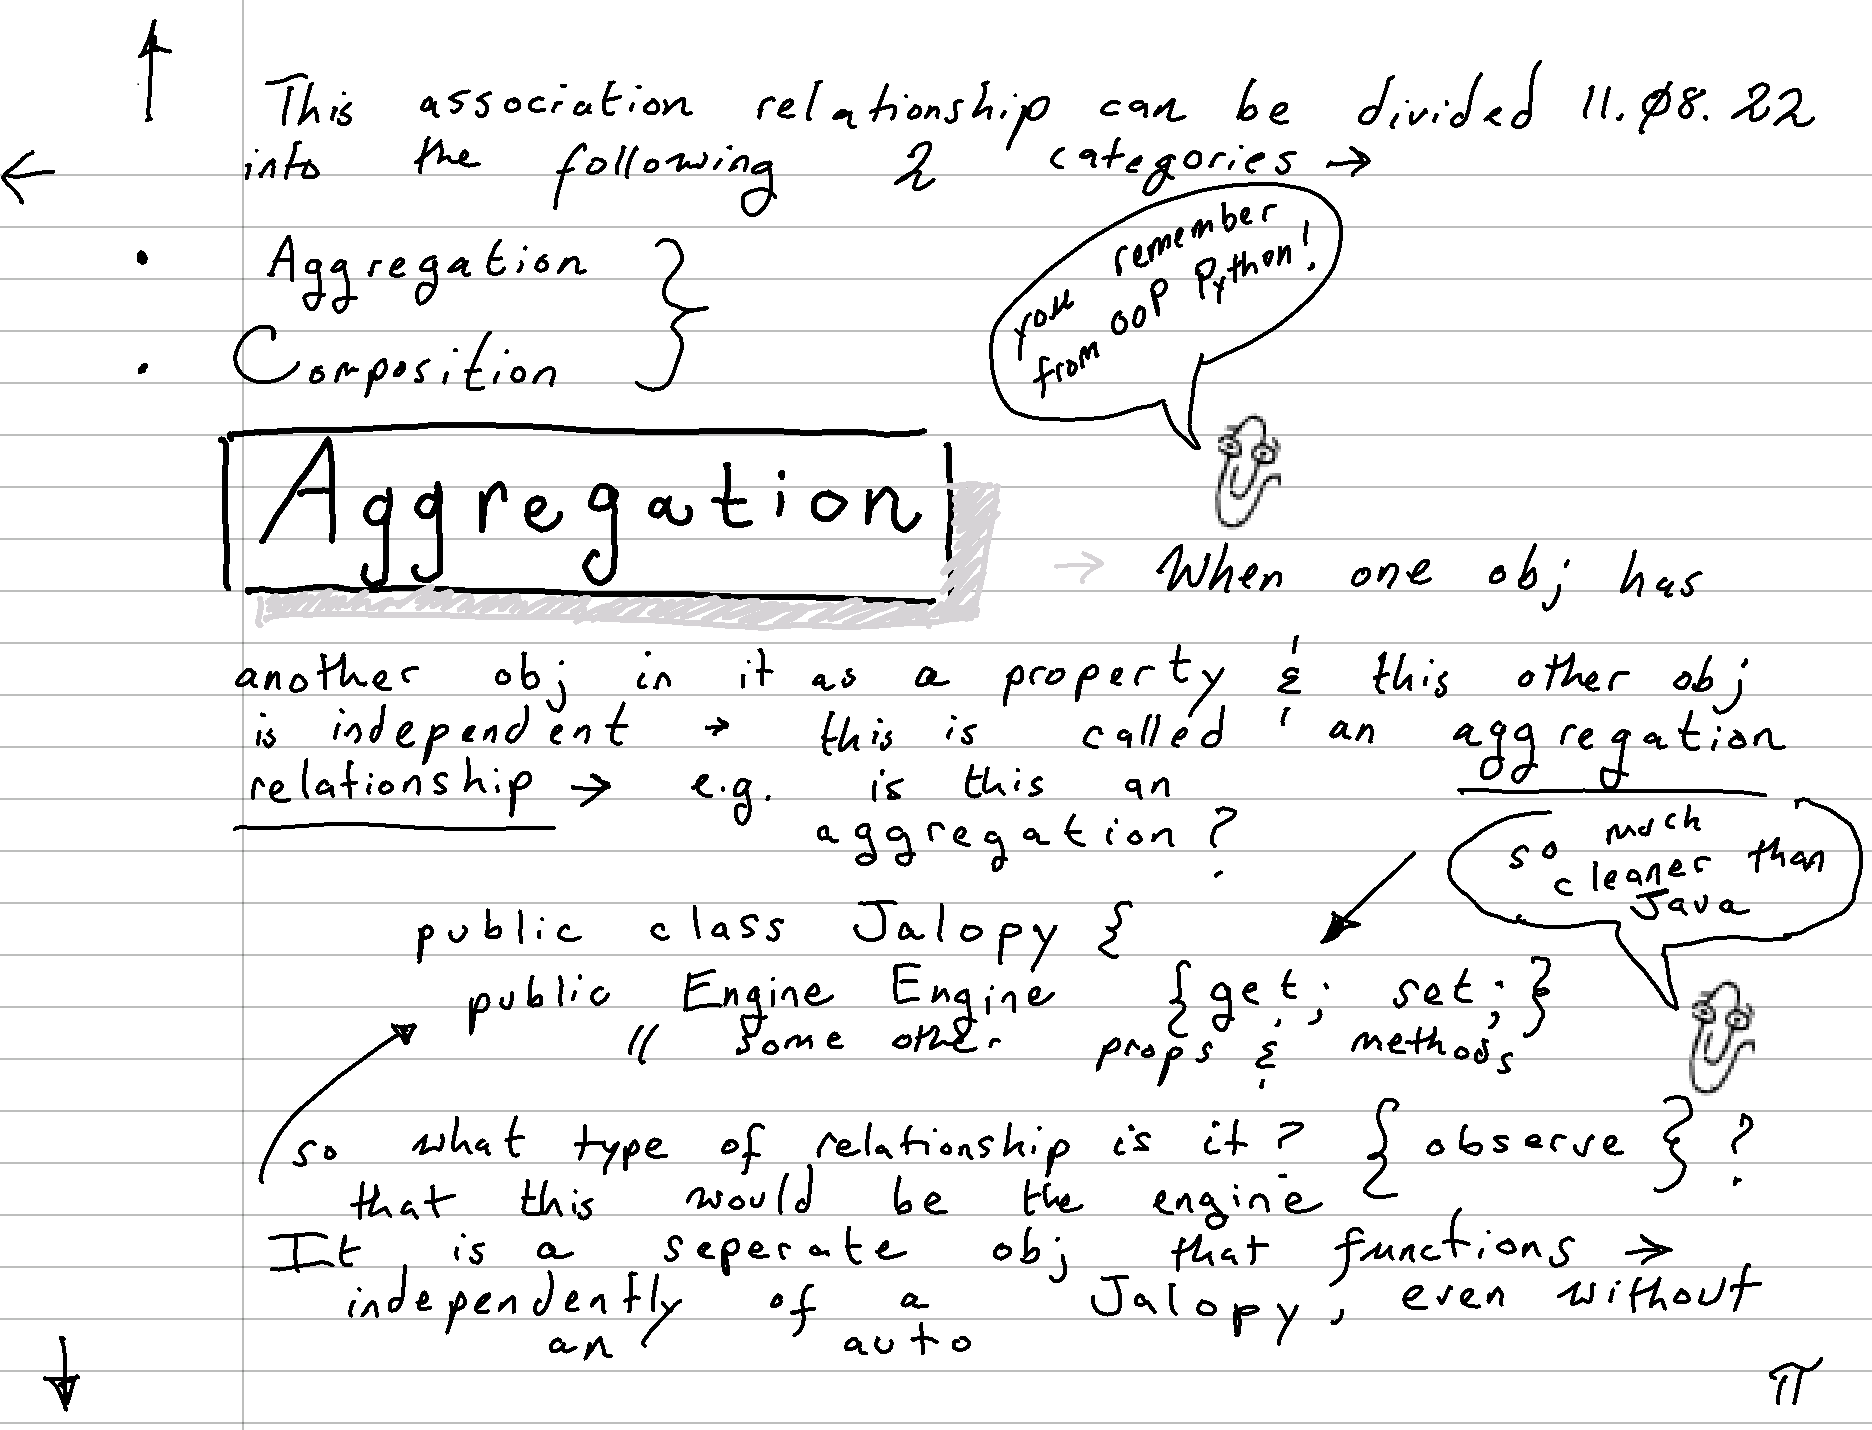 This association relationship can be divided 11.08.22
into the following 2 categories →
• Aggregation
• Composition
you remember
from OOP Python!
Aggregation
→ When one obj has
another obj in it as a property & this other obj
is independent → this is called an aggregation
relationship → e.g. is this an
aggregation?
so much
cleaner than
Java
public class Jalopy {
public Engine Engine {get; set;}
// some other props & methods
so what type of relationship is it? { observe } ?
that this would be the engine
It is a seperate obj that functions →
independently of a Jalopy, even without
an auto
π